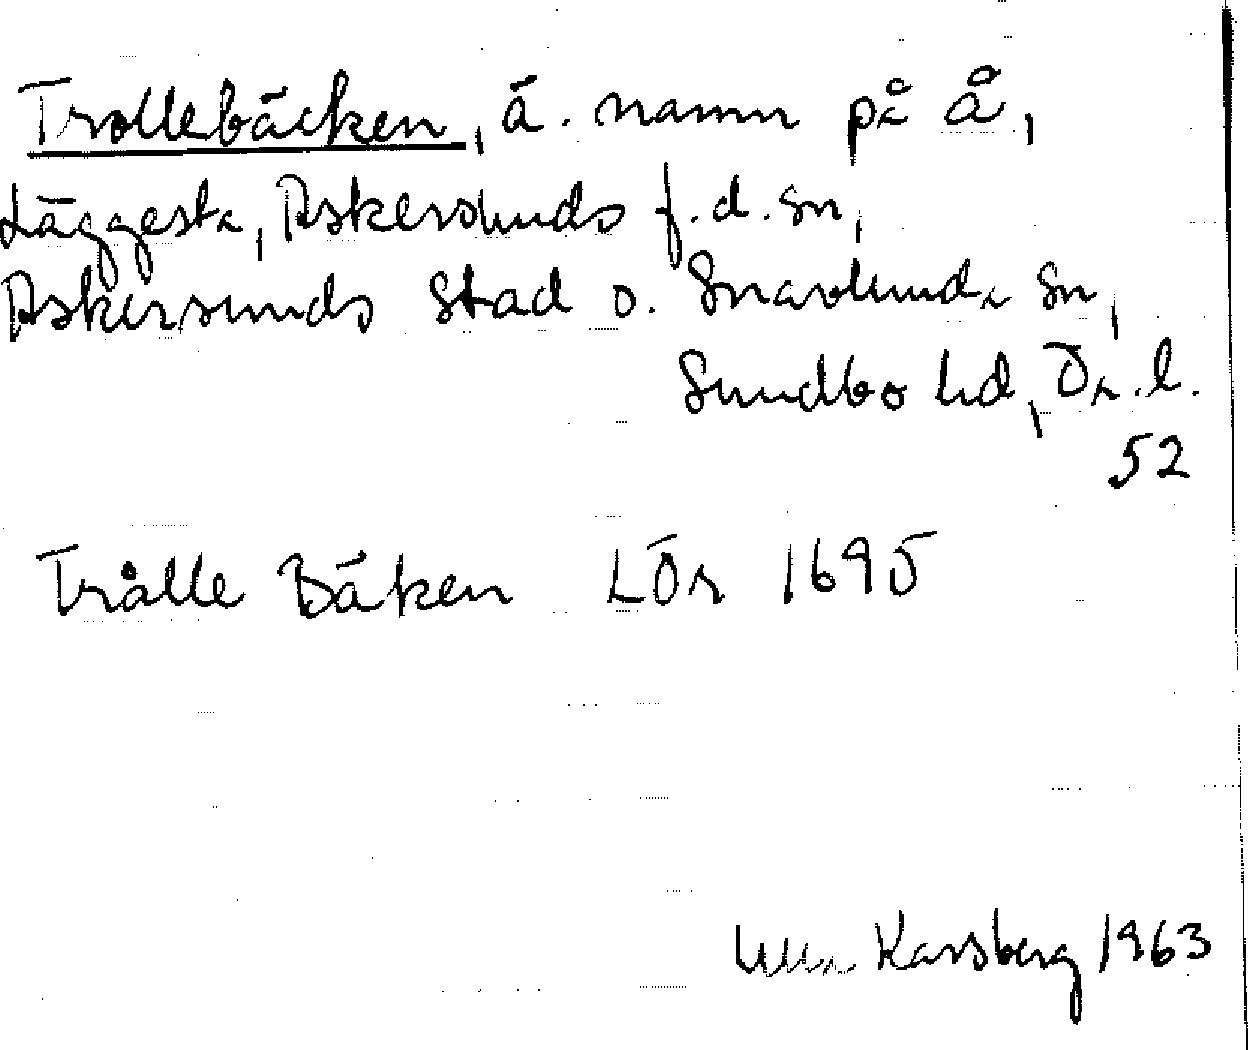 Trollebäcken, ä. namn på å,
Läggesta, Askersunds f.d. sn,
Askersunds stad o. Snavlunda sn,
Sundbo hd, Ör. l.
52
Trålle Bäken LÖr 1695
Ulla Karsberg 1963